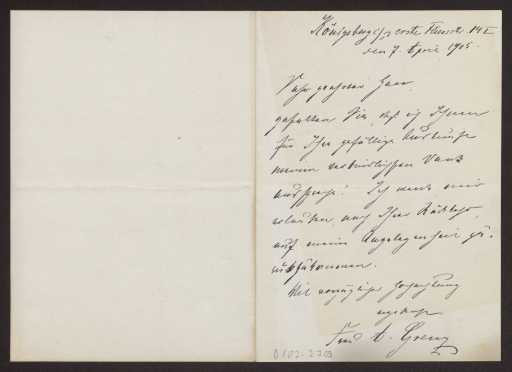 Königsberg i/p erste Fliesstr. 14 I
den 7. April 1905.
Sehr geehrter Herr,
gestatten Sie, daß ich Ihnen
für Ihre gefällige Auskunft
meinen verbindlichsten Dank
ausspreche! Ich werde mir
erlauben, nach Ihrer Rückkehr
auf meine Angelegenheit zu-
rückzukommen.
Mit vorzüglicher Hochachtung
ergebenst
A. Grenz
0102-2209